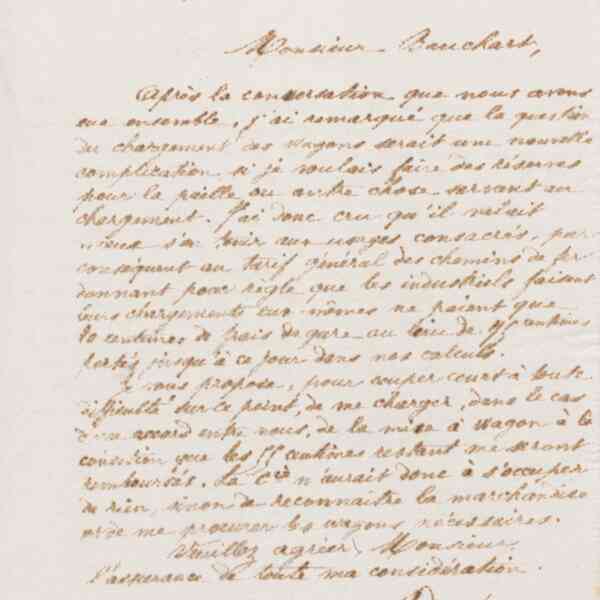 Monsieur Bauchart,
Après la conversation que nous avons
eue ensemble, j'ai remarqué que la question
du chargement des wagons serait une nouvelle
complication si je voulais faire des réserves
pour la paille ou autre chose servant au
chargement. J'ai donc cru qu'il valait
mieux s'en tenir aux usages consacrés, par
conséquent au tarif général des chemins de fer
donnant pour règle que les industriels faisant
leurs chargements eux mêmes ne paient que
centimes de frais de gare au lieu de centimes
portés jusqu'à ce jour dans nos calculs.
Je vous propose, pour couper court à toute
difficulté sur ce point, de me charger, dans le cas
d'un accord entre nous, de la mise à wagon à la
condition que les centimes restant me seront
remboursés. La Cie n'aurait donc à s'occuper
de rien, sinon de reconnaître la marchandise
et de me procurer les wagons nécessaires.
Veuillez agréer, Monsieur,
l'assurance de toute ma considération.